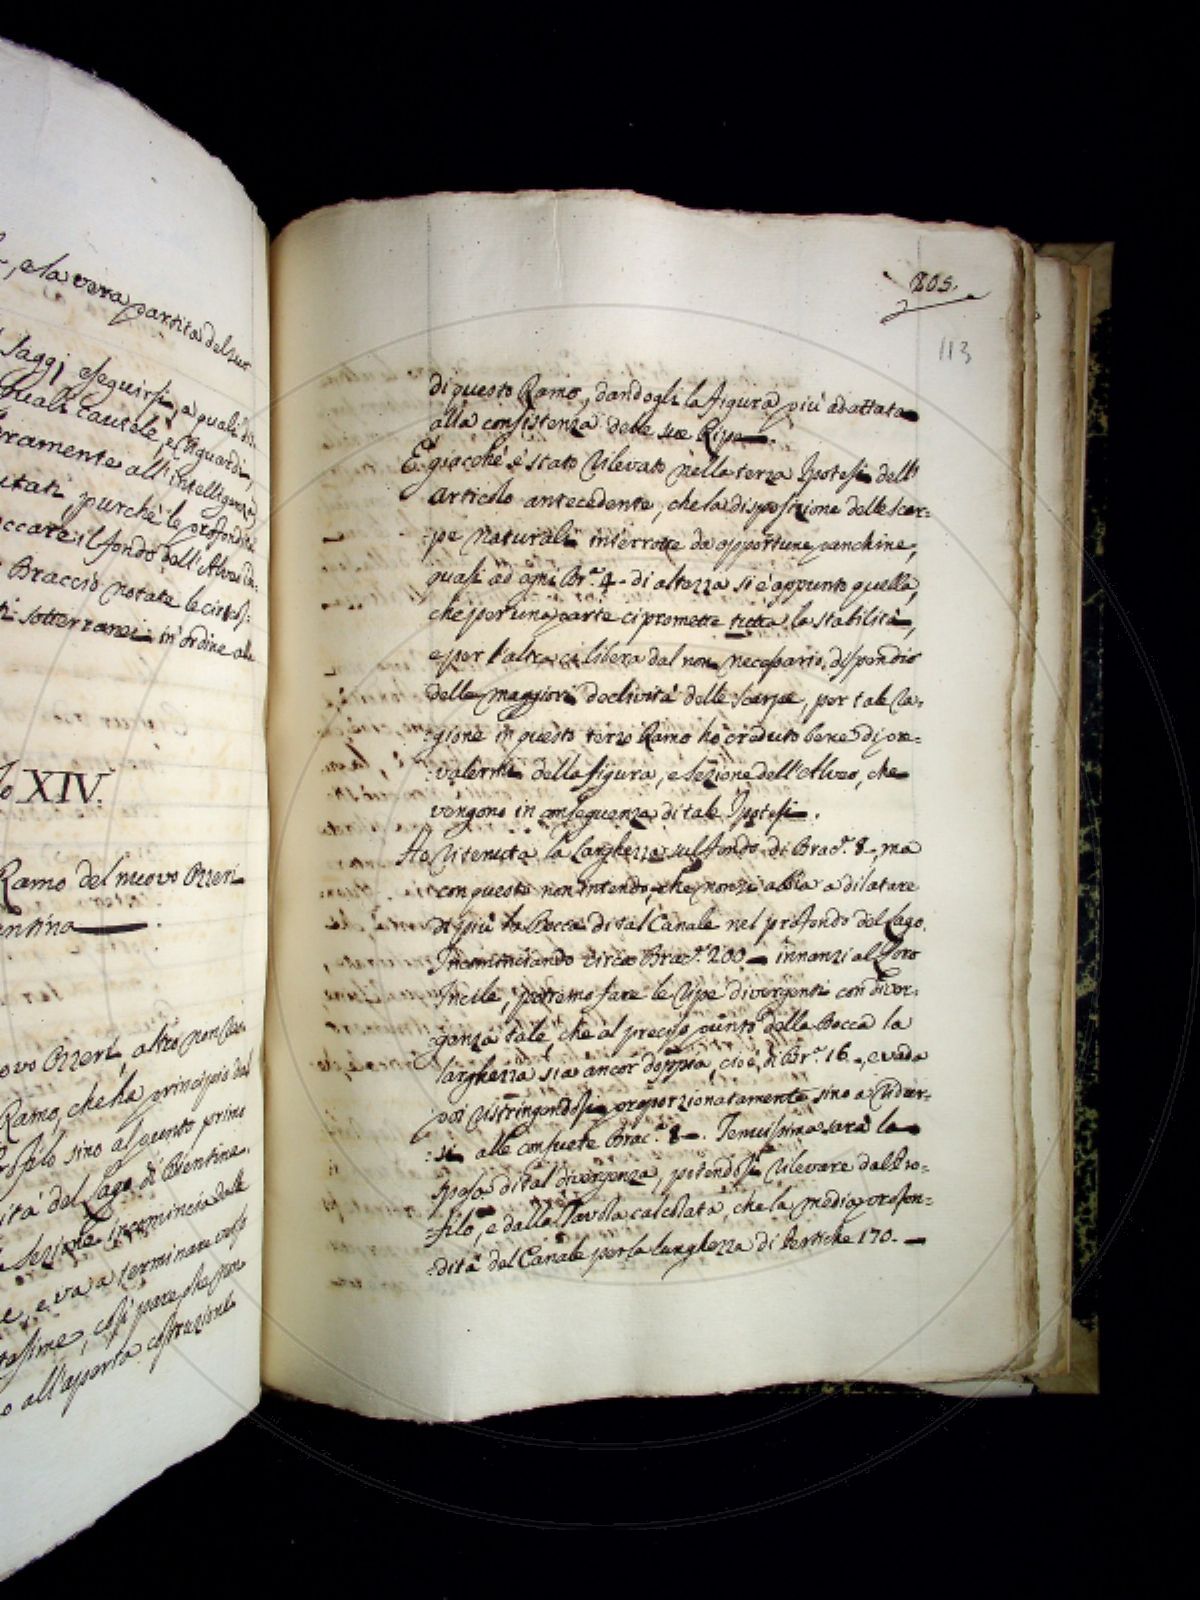 , e la vera partita del suo
Saggj eseguirsi, a quali di:
quali cautele, e riguardi,
eramente all'intelligenza
utati, purchè le profondità
ccare il fondo dell'Alveo
Braccio notate le circos:
ti sotterranei in ordine alla
lo XIV.
Ramo del nuovo Ozzeri
entina
ovo Ozzeri, altro non
Ramo, che ha principio dal
Profilo sino al punto primo
ità del Lago di Bientina.
Sezione incomincia dalle
e, e va a terminare verso
tesime, così pare che
o all'aperta costruzione
205.
113
di questo Ramo, dandogli la figura più adattata
alla consistenza delle sue Ripe.
E giacchè è stato rilevato nella terza Ipotesi dell'
articolo antecedente, che la disposizione delle Scar:
:pe naturali interrotte da opportune panchine,
quasi ad ogni Br.ª 4 di altezza si è appunto quella,
che per una parte ci promette tutta la stabilità,
e per l'altra ci libera dal non necessario dispendio
delle maggiori declività delle Scarpe, per tale ra:
:gione in questo terzo Ramo ho creduto bene di pre:
:valermi della figura, e Sezione dell'Alveo, che
vengono in conseguenza di tale Ipotesi.
Ho ritenuta la larghezza sul fondo di Brac.ª 8, ma
con questo non intendo, che non si abbia a dilatare
di più la Bocca di tal Canale nel profondo del Lago.
Incominciando circa Brac.ª 200 innanzi al loro
Incile, potremo fare le ripe divergenti con diver:
:genza tale, che al preciso punto della Bocca la
larghezza sia ancor doppia, cioè di Br.ª 16, e vada
poi ristringendosi proporzionatamente sino a ridur:
:si alle consuete Brac.ª 8. Tenuissima sarà la
spesa di tal divergenza, potendosi rilevare dal Pro:
:filo, e dalla Tavola calcolata, che la media profon:
:dità del Canale per la lunghezza di Pertiche 170.